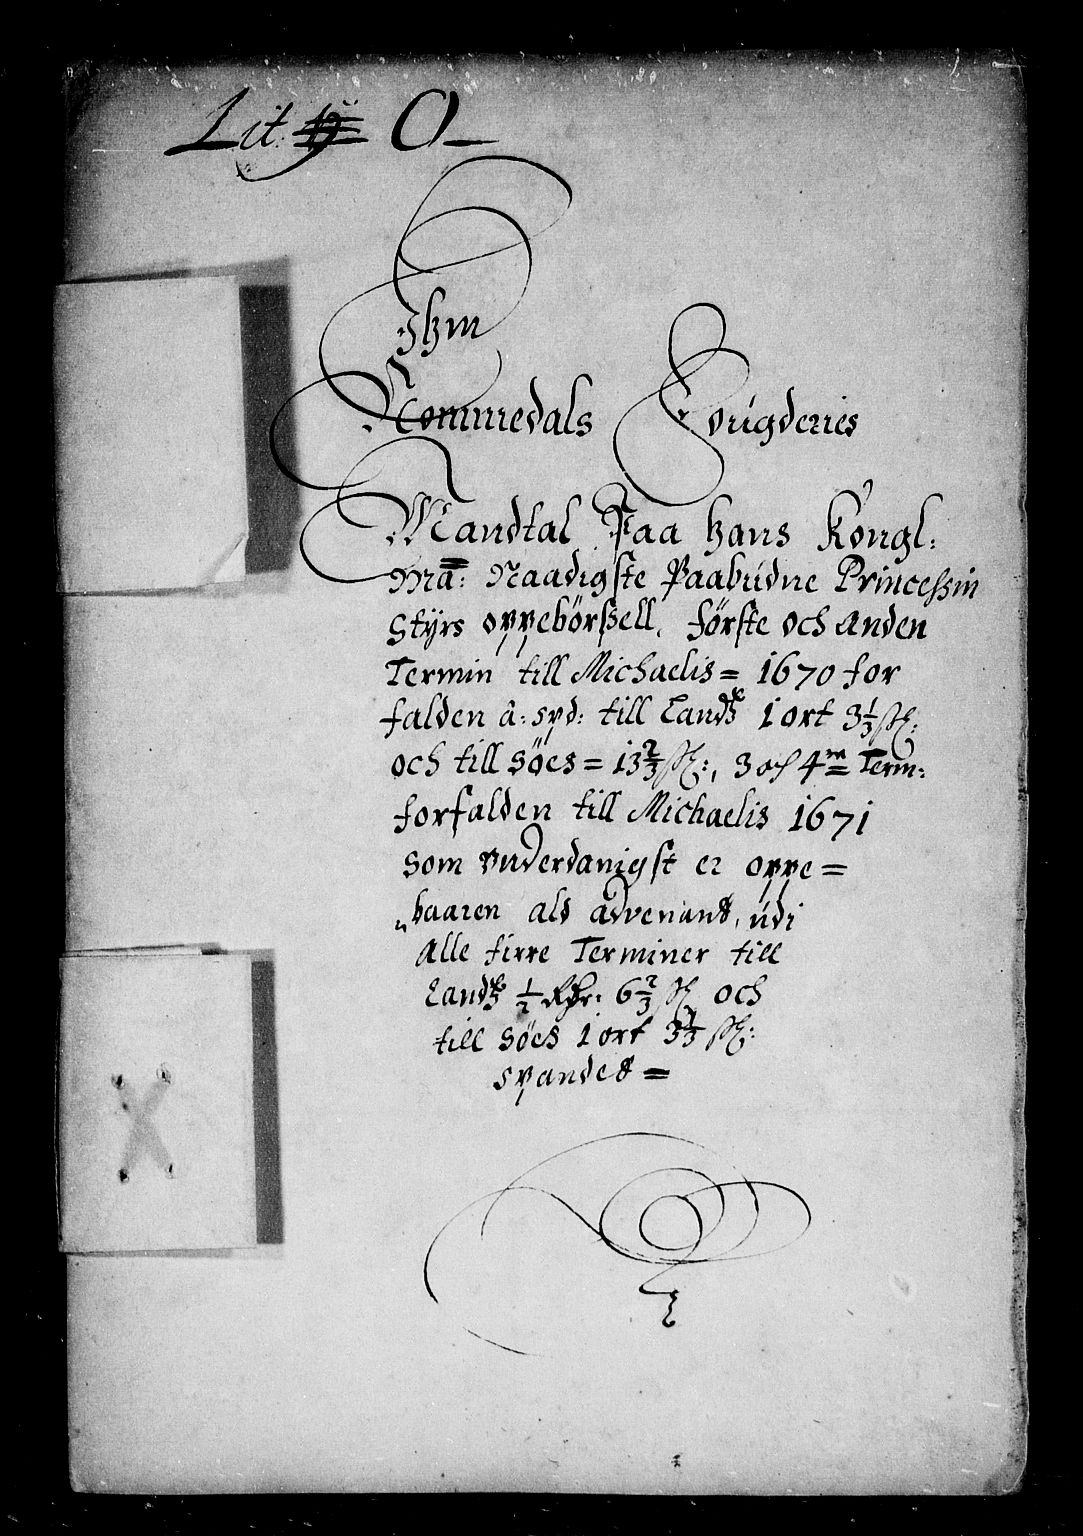 Lit: O
Nommedals Fougderies
Mandtal Paa hans Kongl:
Ma: Naadigste Paabudne Princessin
Styrs oppebörßell, förste och Anden
Termin till Michaelis = 1670 for
falden à: spd: till Landß 1 ort 3⅓ ſſ:
och till Söes = 13⅔ ſſ:, 3 och 4de Term:
forfalden till Michaelis 1671
Som Vnderdanigst er oppe =
baaren ald advenant, udi
Alle firre Terminer till
Landß ½ Rdr: 6⅔ ſſ och
till Söes 1 ort 3⅓ ſſ:
spandet =